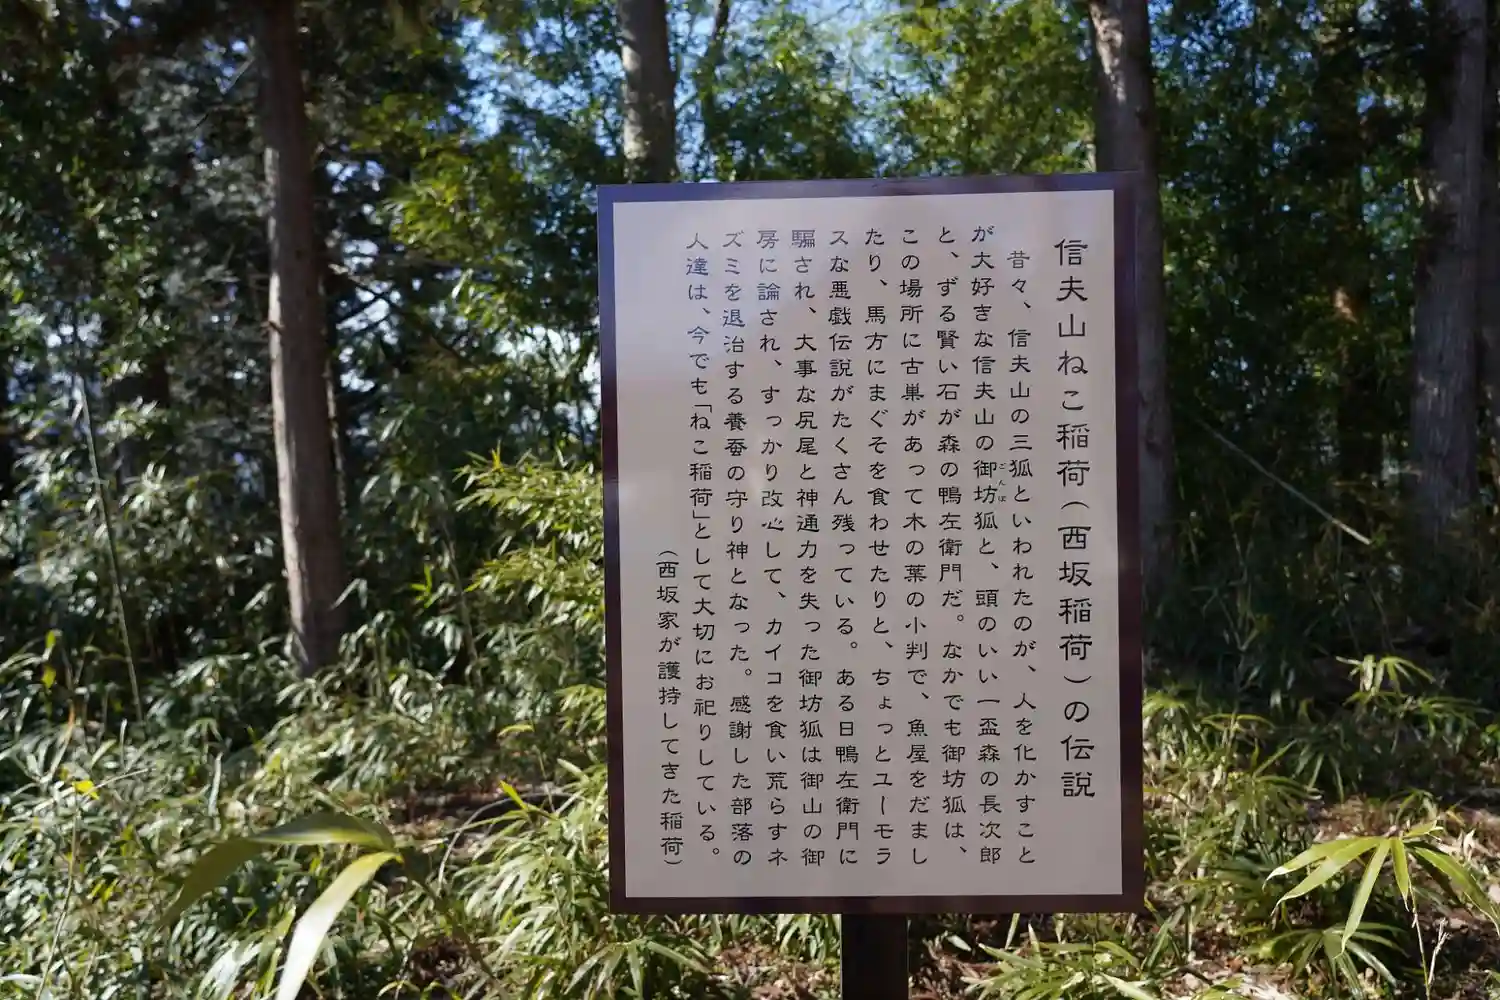 信夫山ねこ稲荷(西坂稲荷)の伝説
昔々、信夫山の三狐といわれたのが、人を化かすこと
が大好きな信夫山の御坊狐と、頭のいい一盃森の長次郎
ごんぼ
と、ずる賢い石が森の鴨左衛門だ。なかでも御坊狐は、
この場所に古巣があって木の葉の小判で、魚屋をだまし
たり、馬方にまぐそを食わせたりと、ちょっとユーモラ
スな悪戯伝説がたくさん残っている。ある日鴨左衛門に
騙され、大事な尻尾と神通力を失った御坊狐は御山の御
房に論され、すっかり改心して、カイコを食い荒らすネ
ズミを退治する養蚕の守り神となった。感謝した部落の
人達は、今でも「ねこ稲荷」として大切にお祀りしている。
(西坂家が護持してきた稲荷)